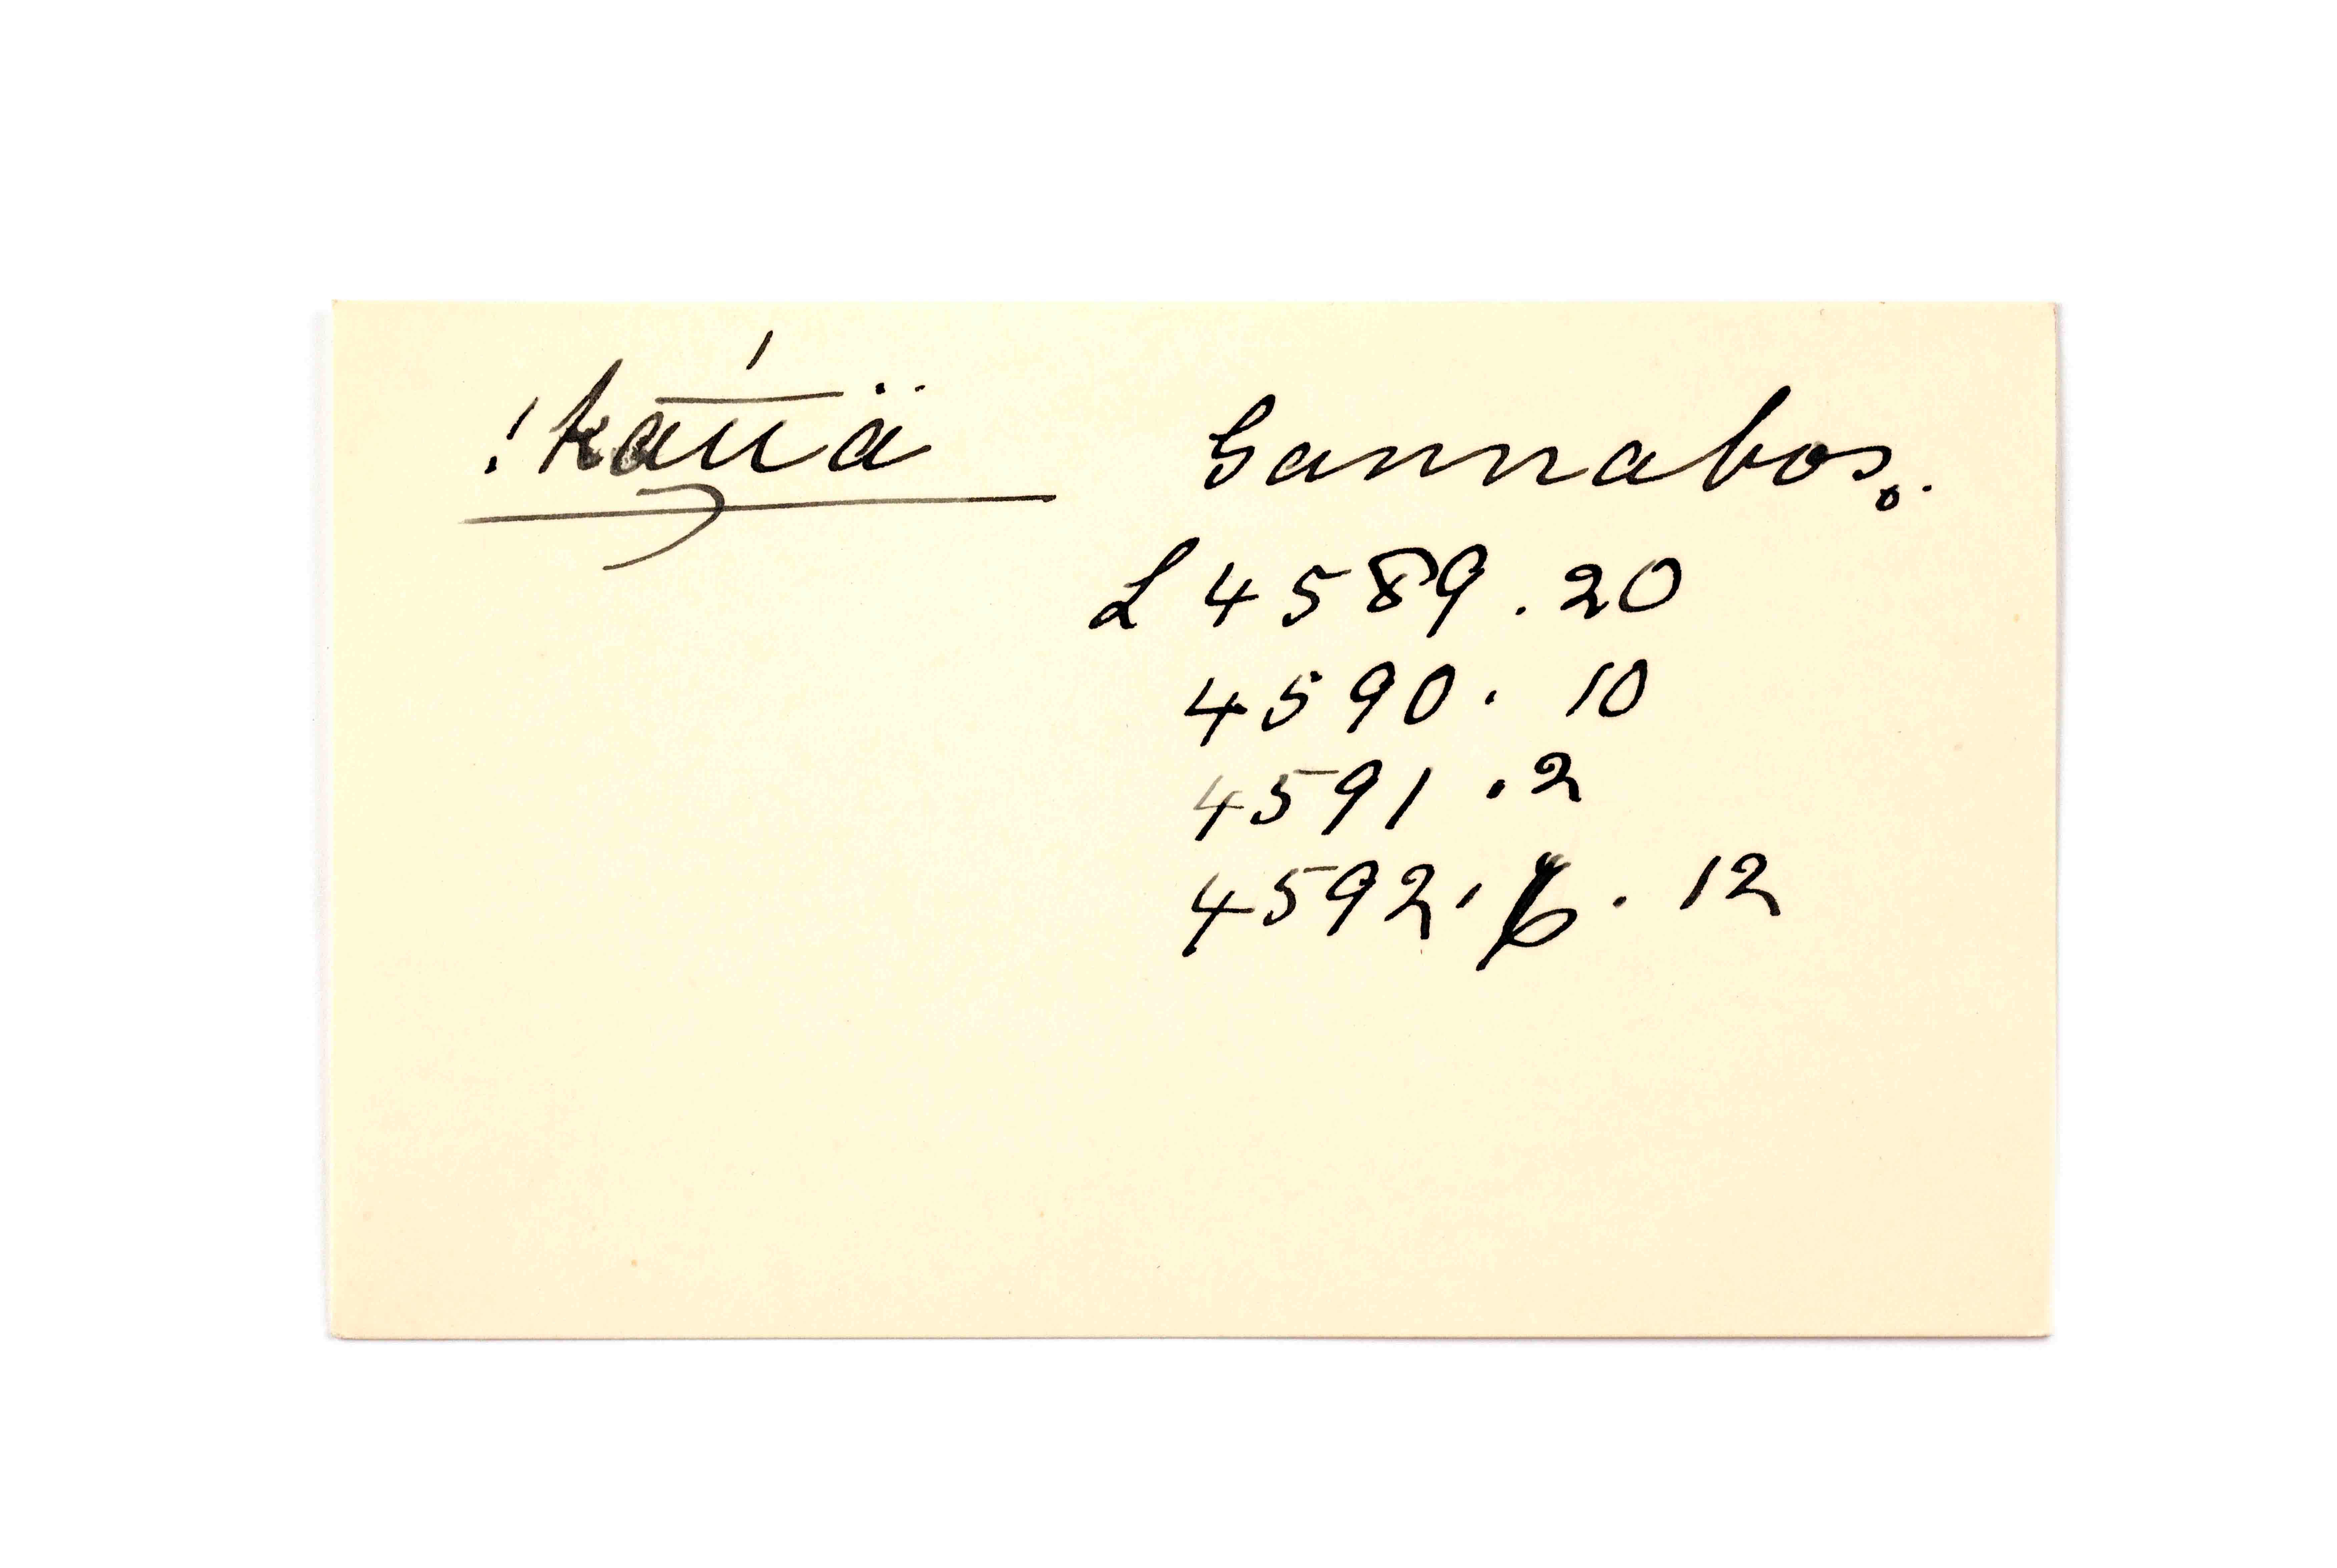 !kaūä Gannabos.
L 4589.20
4590. 10
4591.2
4592.6.12